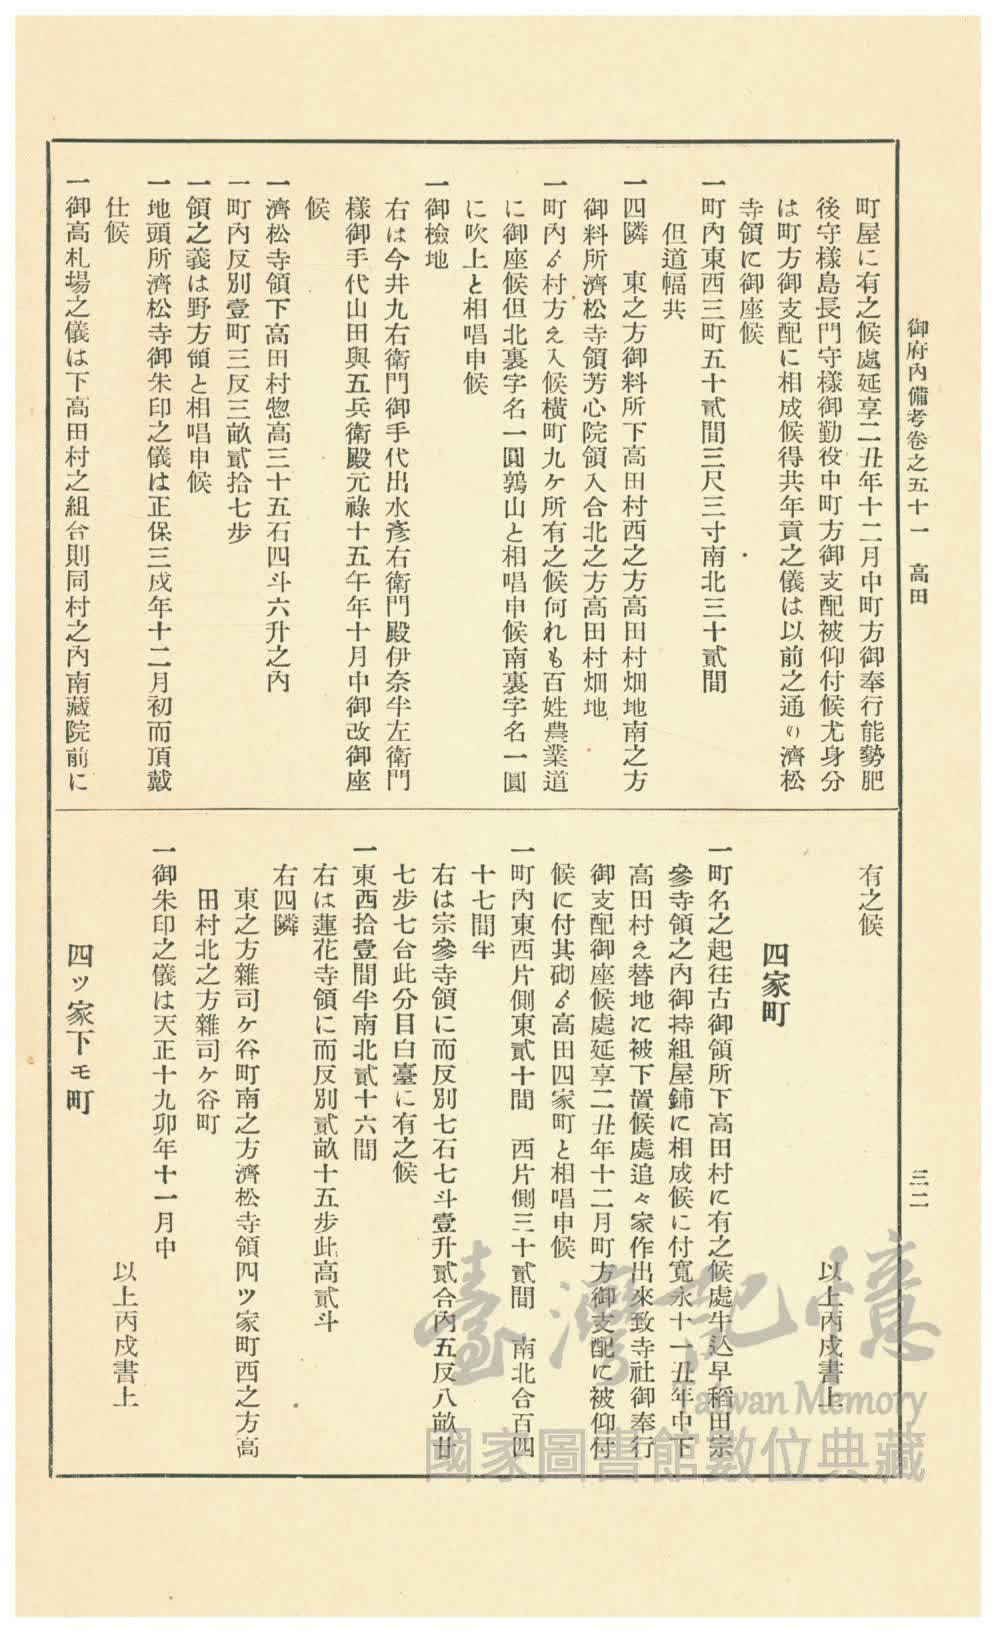 御府內備考卷之五十一　高田
三二
町屋に有之候處延享二丑年十二月中町方御奉行能勢肥
後守樣島長門守樣御勤役中町方御支配被仰付候尤身分
は町方御支配に相成候得共年貢之儀は以前之通り濟松
寺領に御座候
一町內東西三町五十貳間三尺三寸南北三十貳間
但道幅共
一四隣　東之方御料所下高田村西之方高田村畑地南之方
御料所濟松寺領芳心院領入合北之方高田村畑地
一町內ゟ村方え入候橫町九ケ所有之候何れも百姓農業道
に御座候但北裏字名一圓鶉山と相唱申候南裏字名一圓
に吹上と相唱申候
一御檢地
右は今井九右衛門御手代出水彥右衛門殿伊奈半左衛門
樣御手代山田與五兵衛殿元祿十五午年十月中御改御座
候
一濟松寺領下高田村惣高三十五石四斗六升之內
一町內反別壹町三反三畝貳拾七步
一領之義は野方領と相唱申候
一地頭所濟松寺御朱印之儀は正保三戌年十二月初而頂戴
仕候
一御高札場之儀は下高田村之組合則同村之內南藏院前に
有之候
以上丙戌書上
四家町
一町名之起往古御領所下高田村に有之候處牛込早稻田宗
參寺領之內御持組屋鋪に相成候に付寬永十一丑年中下
高田村え替地に被下置候處追々家作出來致寺社御奉行
御支配御座候處延享二丑年十二月町方御支配に被仰付
候に付其砌ゟ高田四家町と相唱申候
一町內東西片側東貳十間　西片側三十貳間　南北合百四
十七間半
右は宗參寺領に而反別七石七斗壹升貳合內五反八畝廿
七步七合此分目白臺に有之候
一東西拾壹間半南北貳十六間
右は蓮花寺領に而反別貳畝十五步此高貳斗
右四隣
東之方雜司ケ谷町南之方濟松寺領四ツ家町西之方高
田村北之方雜司ケ谷町
一御朱印之儀は天正十九卯年十一月中
以上丙戌書上
四ッ家下モ町
臺灣記憶
Taiwan Memory
國家圖書館數位典藏